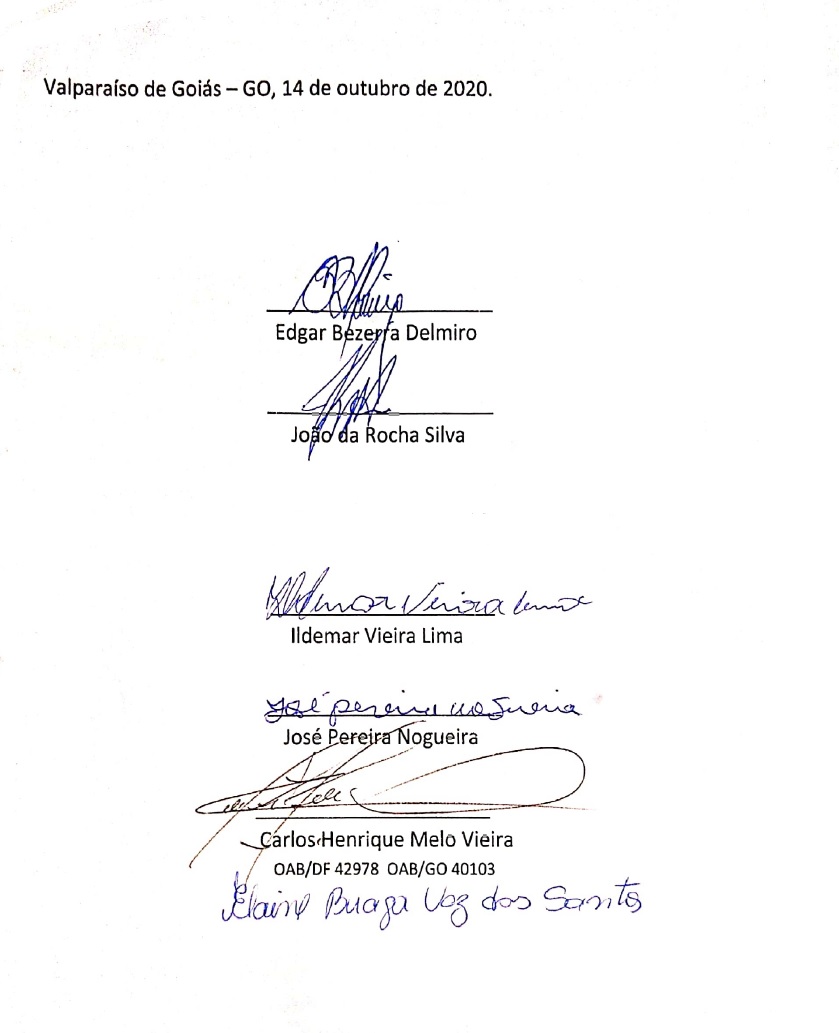 Valparaíso de Goiás – GO, 14 de outubro de 2020.
Edgar Bezerra Delmiro
João da Rocha Silva
Ildemar Vieira Lima
Ildemar Vieira Lima
José pereira nogueira
José Pereira Nogueira
Carlos Henrique Melo Vieira
OAB/DF 42978 OAB/GO 40103
Elaine Braga Vaz dos Santos